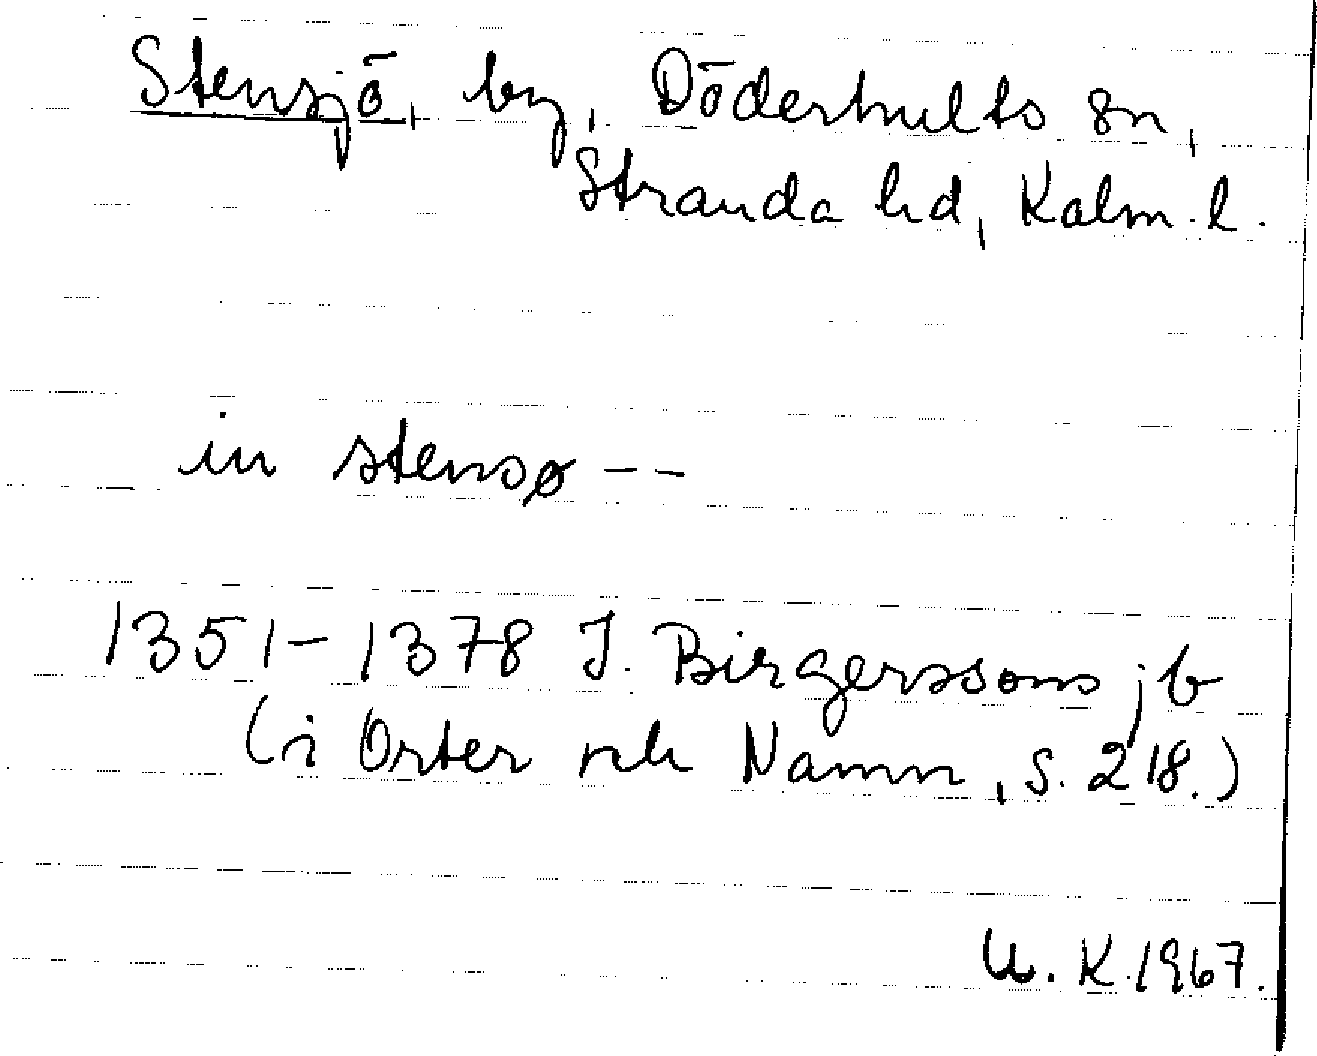 Stensjö, by, Döderhults sn,
Stranda hd, Kalm. l.
in stensø --
1351-1378 J. Birgerssons jb
(i Orter och Namn, s. 218.)
U. K. 1967.